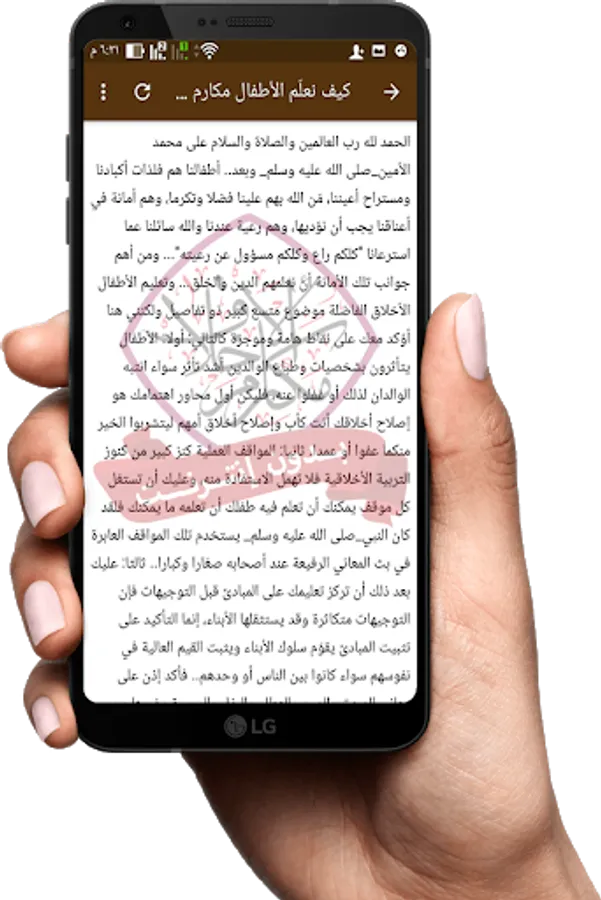 ٦:٢١ م
كيف نعلّم الأطفال مكارم ...
الحمد لله رب العالمين والصلاة والسلام على محمد
الأمين_صلى الله عليه وسلم_ وبعد.. أطفالنا هم فلذات أكبادنا
ومستراح أعيننا، مَن الله بهم علينا فضلا وتكرما، وهم أمانة في
أعناقنا يجب أن نؤديها، وهم رعية عندنا والله سائلنا عما
استرعانا "كلكم راع وكلكم مسؤول عن رعيته"... ومن أهم
جوانب تلك الأمانة أن نعلمهم الدين والخلق.. وتعليم الأطفال
الأخلاق الفاضلة موضوع متسع كبير ذو تفاصيل ولكنني هنا
أؤكد معك على نقاط هامة وموجزة كالتالي: أولا: الأطفال
يتأثرون بشخصيات وطباع الوالدين أشد تأثر سواء انتبه
الوالدان لذلك أو غفلوا عنه، فليكن أول محاور اهتمامك هو
إصلاح أخلاقك أنت كأب وإصلاح أخلاق أمهم ليتشربوا الخير
منكما عفوا أو عمدا. ثانيا: المواقف العملية كنز كبير من كنوز
التربية الأخلاقية فلا تهمل الاستفادة منه، وعليك أن تستغل
كل موقف يمكنك أن تعلم فيه طفلك أن تعلمه ما يمكنك فلقد
كان النبي_صلى الله عليه وسلم_ يستخدم تلك المواقف العابرة
في بث المعاني الرفيعة عند أصحابه صغارا وكبارا.. ثالثا: عليك
بعد ذلك أن تركز تعليمك على المبادئ قبل التوجيهات فإن
التوجيهات متكاثرة وقد يستثقلها الأبناء، إنما التأكيد على
تثبيت المبادئ يقوّم سلوك الأبناء ويثبت القيم العالية في
نفوسهم سواء كانوا بين الناس أو وحدهم.. فأكد إذن على
بدون إنترنت
LG